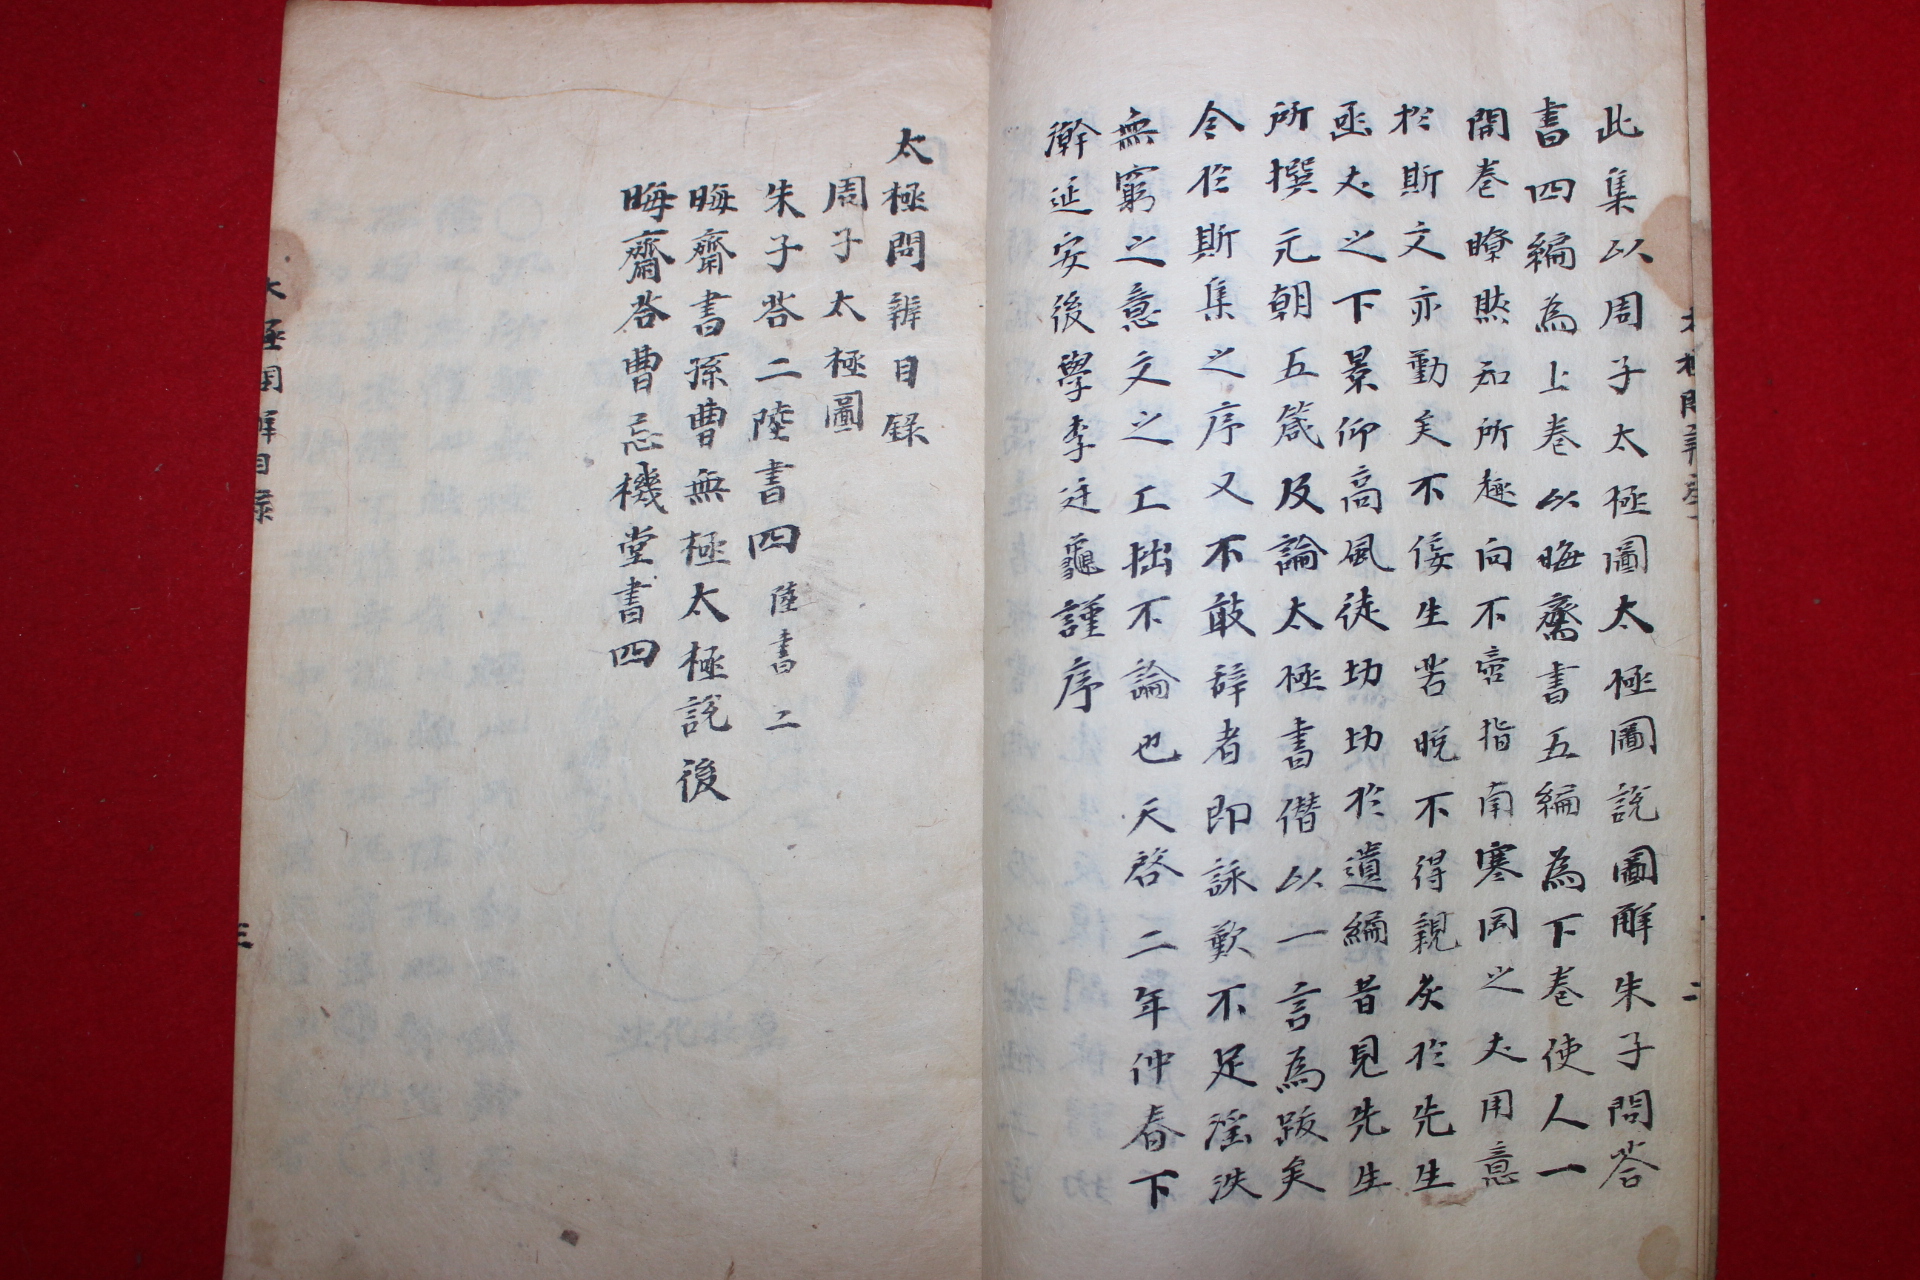 此集以周子太極圖太極圖說圖解朱子問答
書四編為上卷以晦齋書五編為下卷使人一
開卷瞭然知所趍向不啻指南寒岡之丈用意
於斯文亦勤矣不佞生苦晚不得親炙於先生
函丈之下景仰高風徒切切於遺編昔見先生
所撰元朝五箴及論太極書僭以一言為跋矣
今於斯集之序又不敢辞者即詠歎不足淫泆
無窮之意文之工拙不論也天啓二年仲春下
澣延安後學李廷龜謹序
太極問辨目録
周子太極圖
朱子答二陸書四 陸書二
晦齋書孫曹無極太極説後
晦齋答曹忌機堂書四